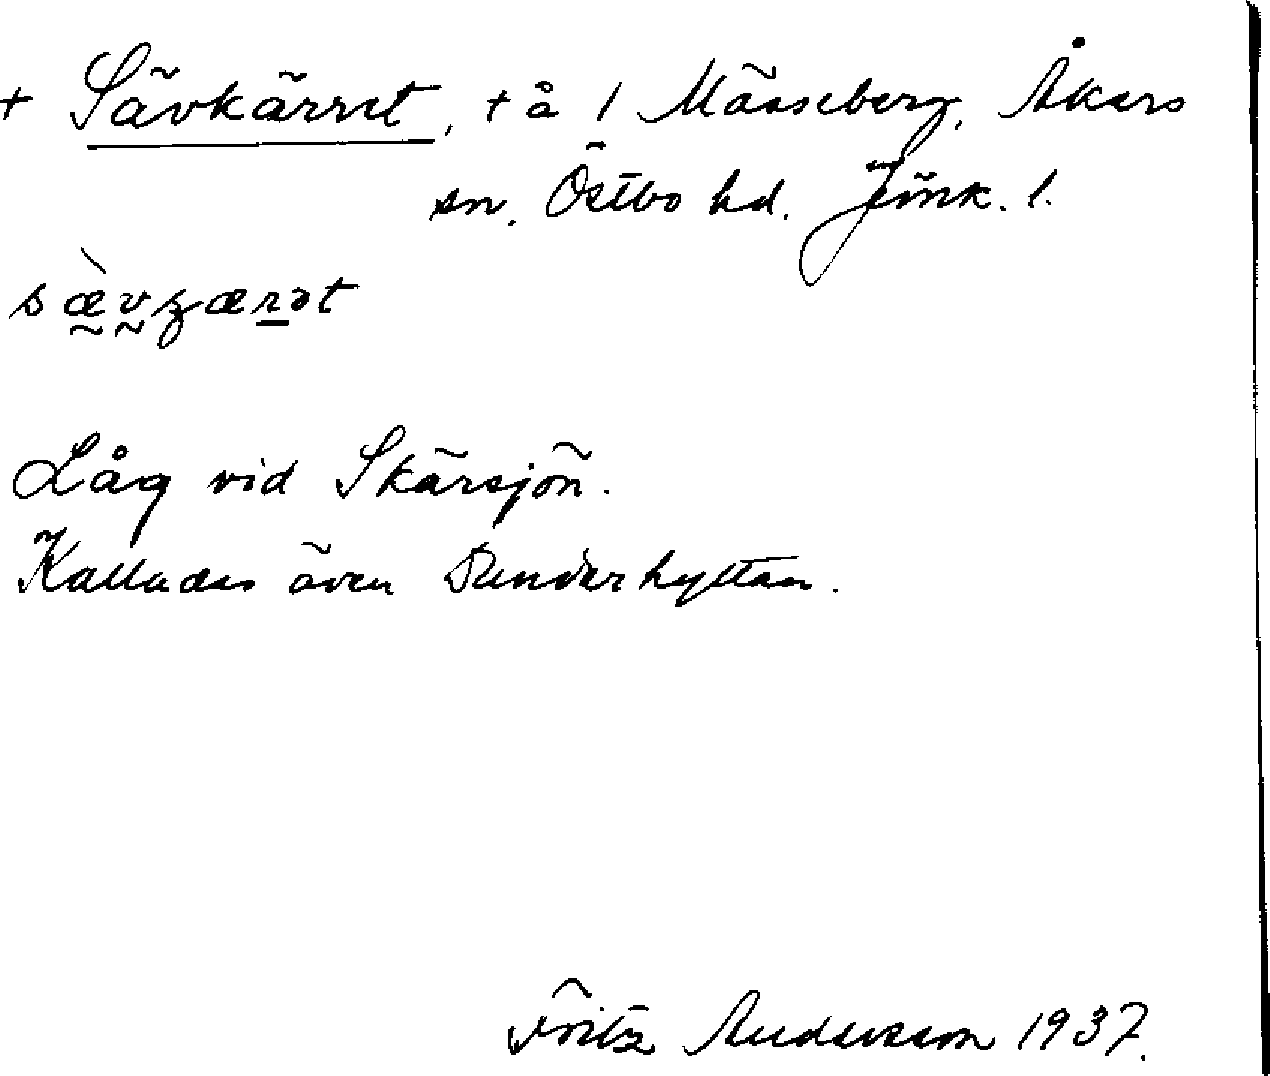 + Sävkärret, + å 1 Mässeberg, Åkers
sn. Östbo hd. Jönk. l.
Låg vid Skärsjön.
Kallades även Dunderhyttan.
Fritz Andersson 1937.